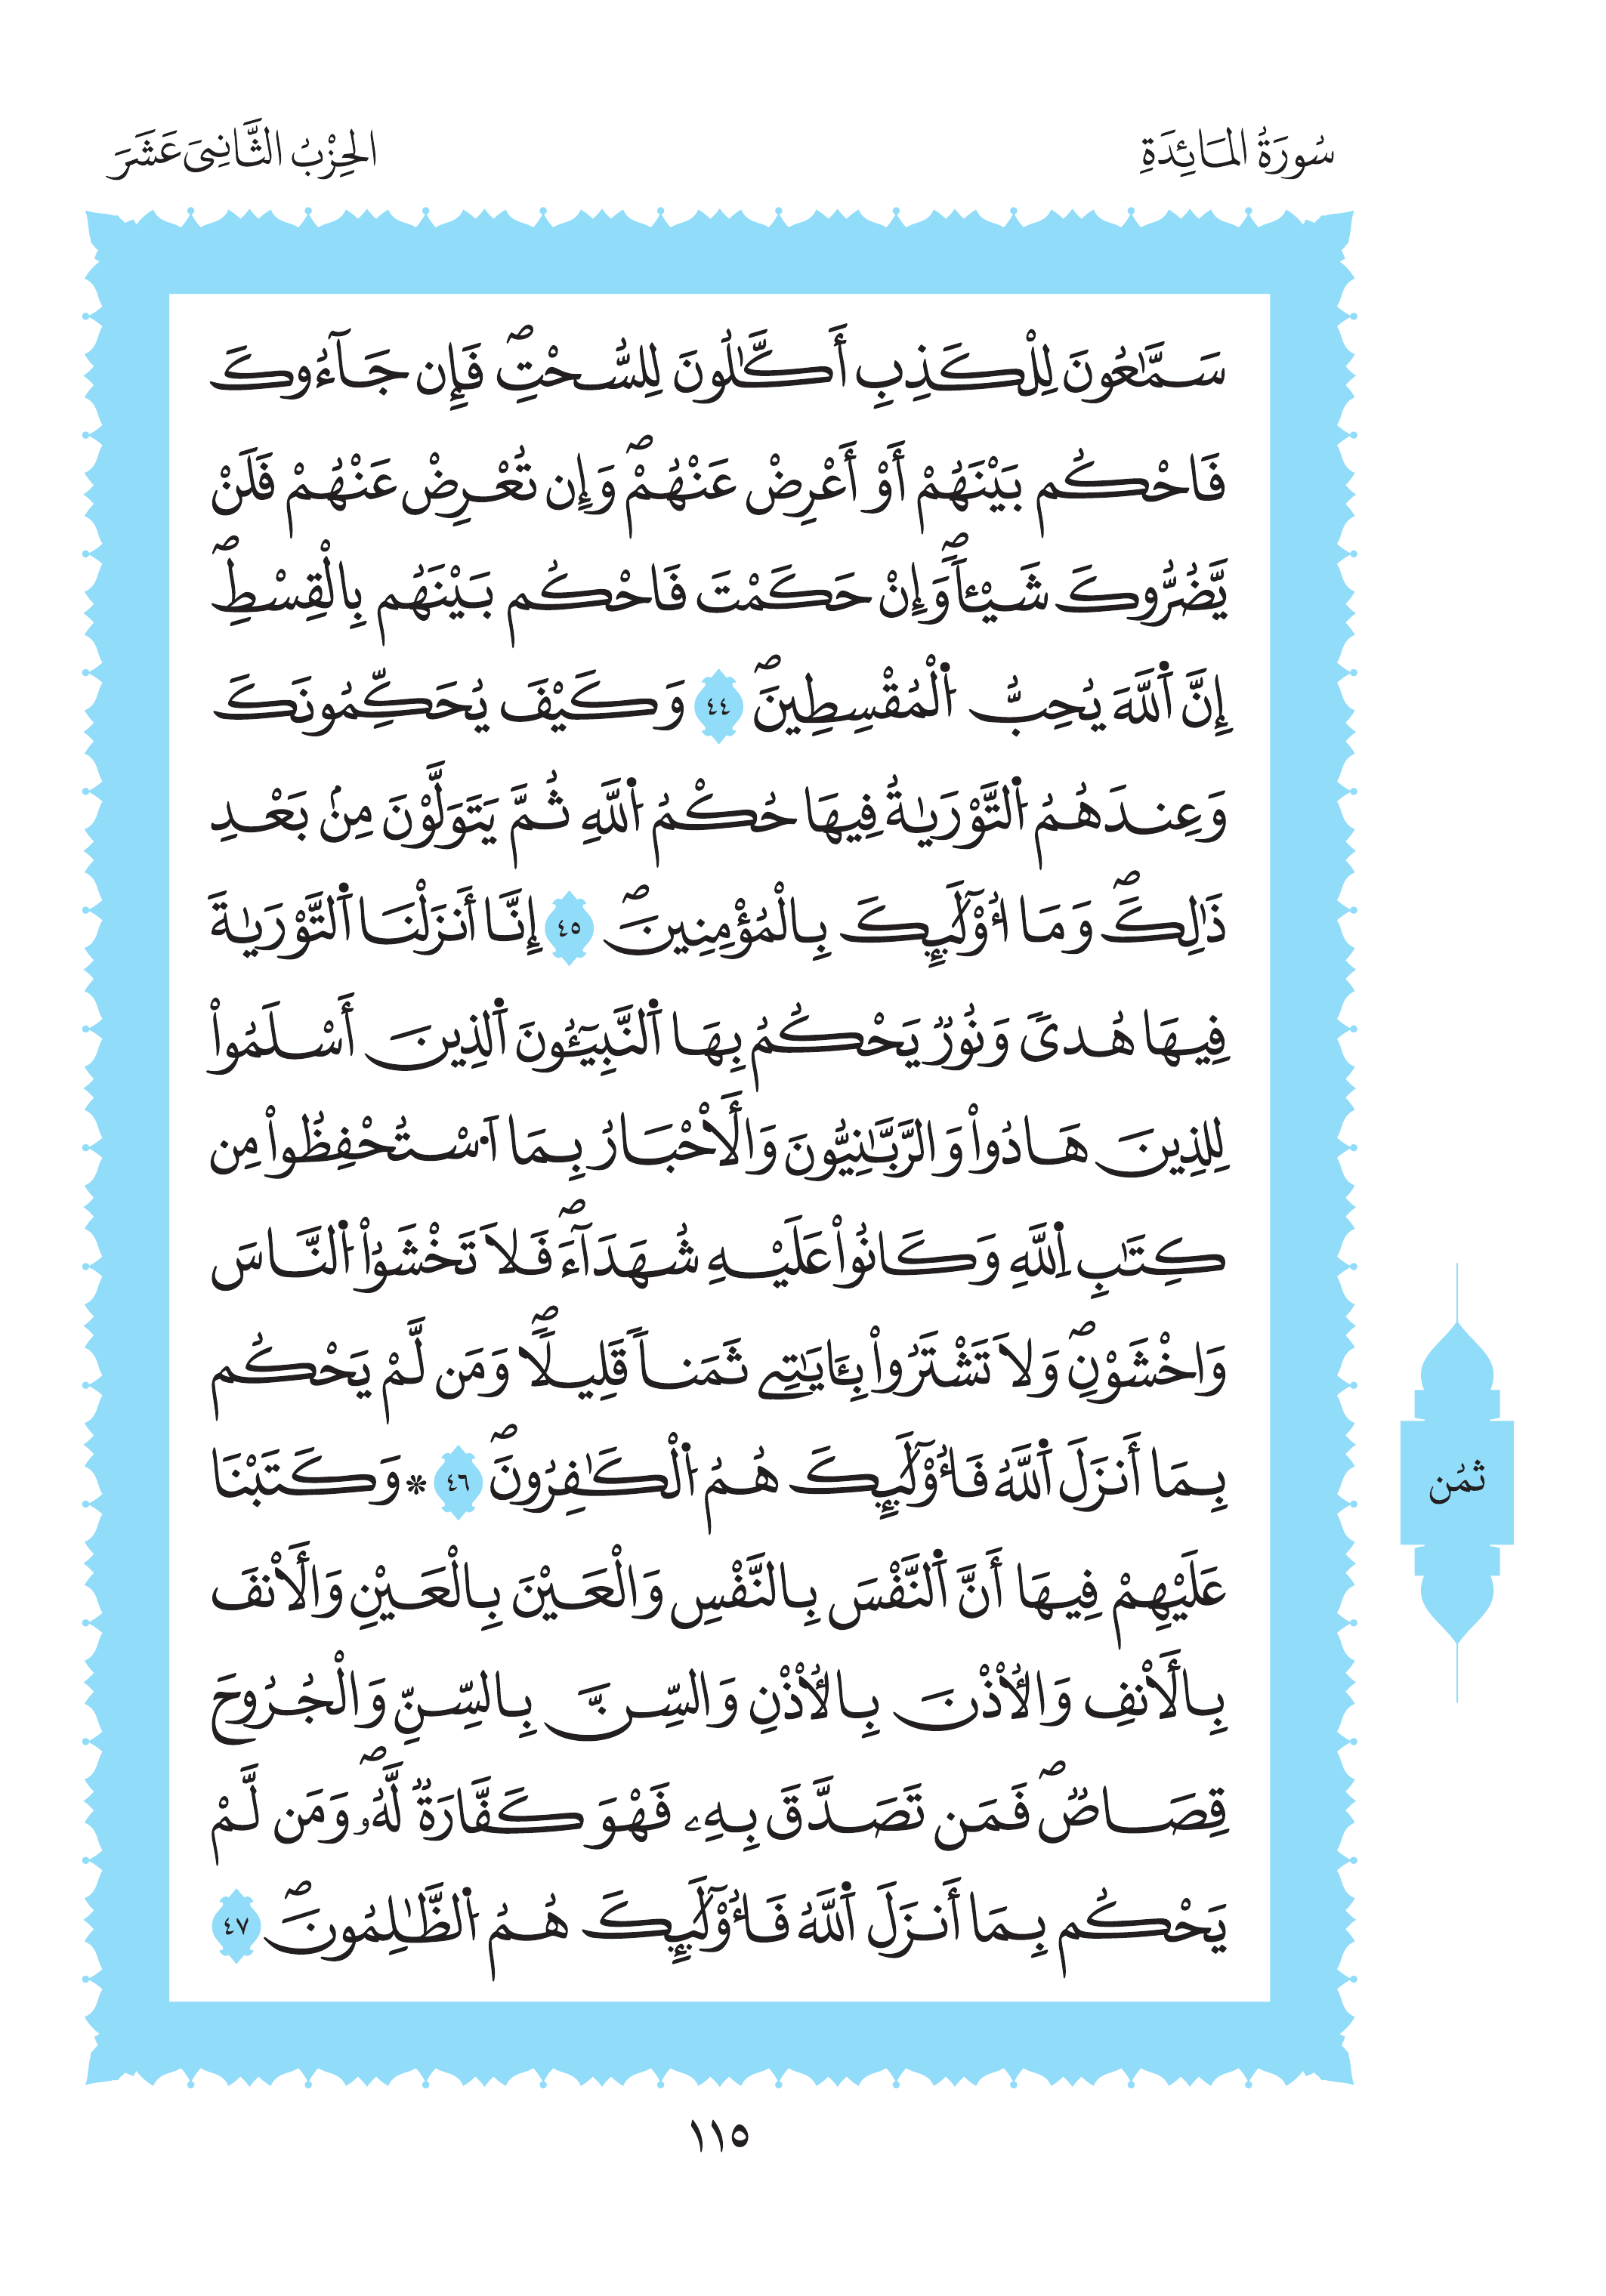 سُورَةُ المَائِدَةِ
الحِزْبُ الثَّانِيَ عَشَرَ
سَمَّٰعُونَ لِلْكَذِبِ أَكَّٰلُونَ لِلسُّحْتِۖ فَإِن جَآءُوكَ
فَاحْكُم بَيْنَهُمْ أَوْ أَعْرِضْ عَنْهُمْۖ وَإِن تُعْرِضْ عَنْهُمْ فَلَنْ
يَّضُرُّوكَ شَيْـٔاًۖ وَإِنْ حَكَمْتَ فَاحْكُم بَيْنَهُم بِالْقِسْطِۖ
إِنَّ اَ۬للَّهَ يُحِبُّ اُ۬لْمُقْسِطِينَۖ ٤٤ وَكَيْفَ يُحَكِّمُونَكَ
وَعِندَهُمُ اُ۬لتَّوْرَيٰةُ فِيهَا حُكْمُ اُ۬للَّهِ ثُمَّ يَتَوَلَّوْنَ مِنۢ بَعْدِ
ذَٰلِكَۖ وَمَا أُوْلَٰٓئِكَ بِالْمُؤْمِنِينَۖ ٤٥ إِنَّا أَنزَلْنَا اَ۬لتَّوْرَيٰةَ
فِيهَا هُدىً وَنُورٌ يَحْكُمُ بِهَا اَ۬لنَّبِيٓـُٔونَ اَ۬لذِينَ أَسْلَمُواْ
لِلذِينَ هَادُواْ وَالرَّبَّٰنِيُّونَ وَالَأَحْبَارُ بِمَا اَ۟سْتُحْفِظُواْ مِن
كِتَٰبِ اِ۬للَّهِ وَكَانُواْ عَلَيْهِ شُهَدَآءَۖ فَلَا تَخْشَوُاْ اُ۬لنَّاسَ
وَاخْشَوْنِۖ وَلَا تَشْتَرُواْ بِـَٔايَٰتِے ثَمَناً قَلِيلًاۖ وَمَن لَّمْ يَحْكُم
بِمَا أَنزَلَ اَ۬للَّهُ فَأُوْلَٰٓئِكَ هُمُ اُ۬لْكَٰفِرُونَۖ ٤٦ *وَكَتَبْنَا
عَلَيْهِمْ فِيهَا أَنَّ اَ۬لنَّفْسَ بِالنَّفْسِ وَالْعَيْنَ بِالْعَيْنِ وَالَأَنْفَ
بِالَأَنْفِ وَالُأذْنَ بِالُأذْنِ وَالسِّنَّ بِالسِّنِّ وَالْجُرُوحَ
قِصَاصٌۖ فَمَن تَصَدَّقَ بِهِۦ فَهْوَ كَفَّارَةٌ لَّهُۥۖ وَمَن لَّمْ
يَحْكُم بِمَا أَنزَلَ اَ۬للَّهُ فَأُوْلَٰٓئِكَ هُمُ اُ۬لظَّٰلِمُونَۖ ٤٧
ثمُن
١١٥